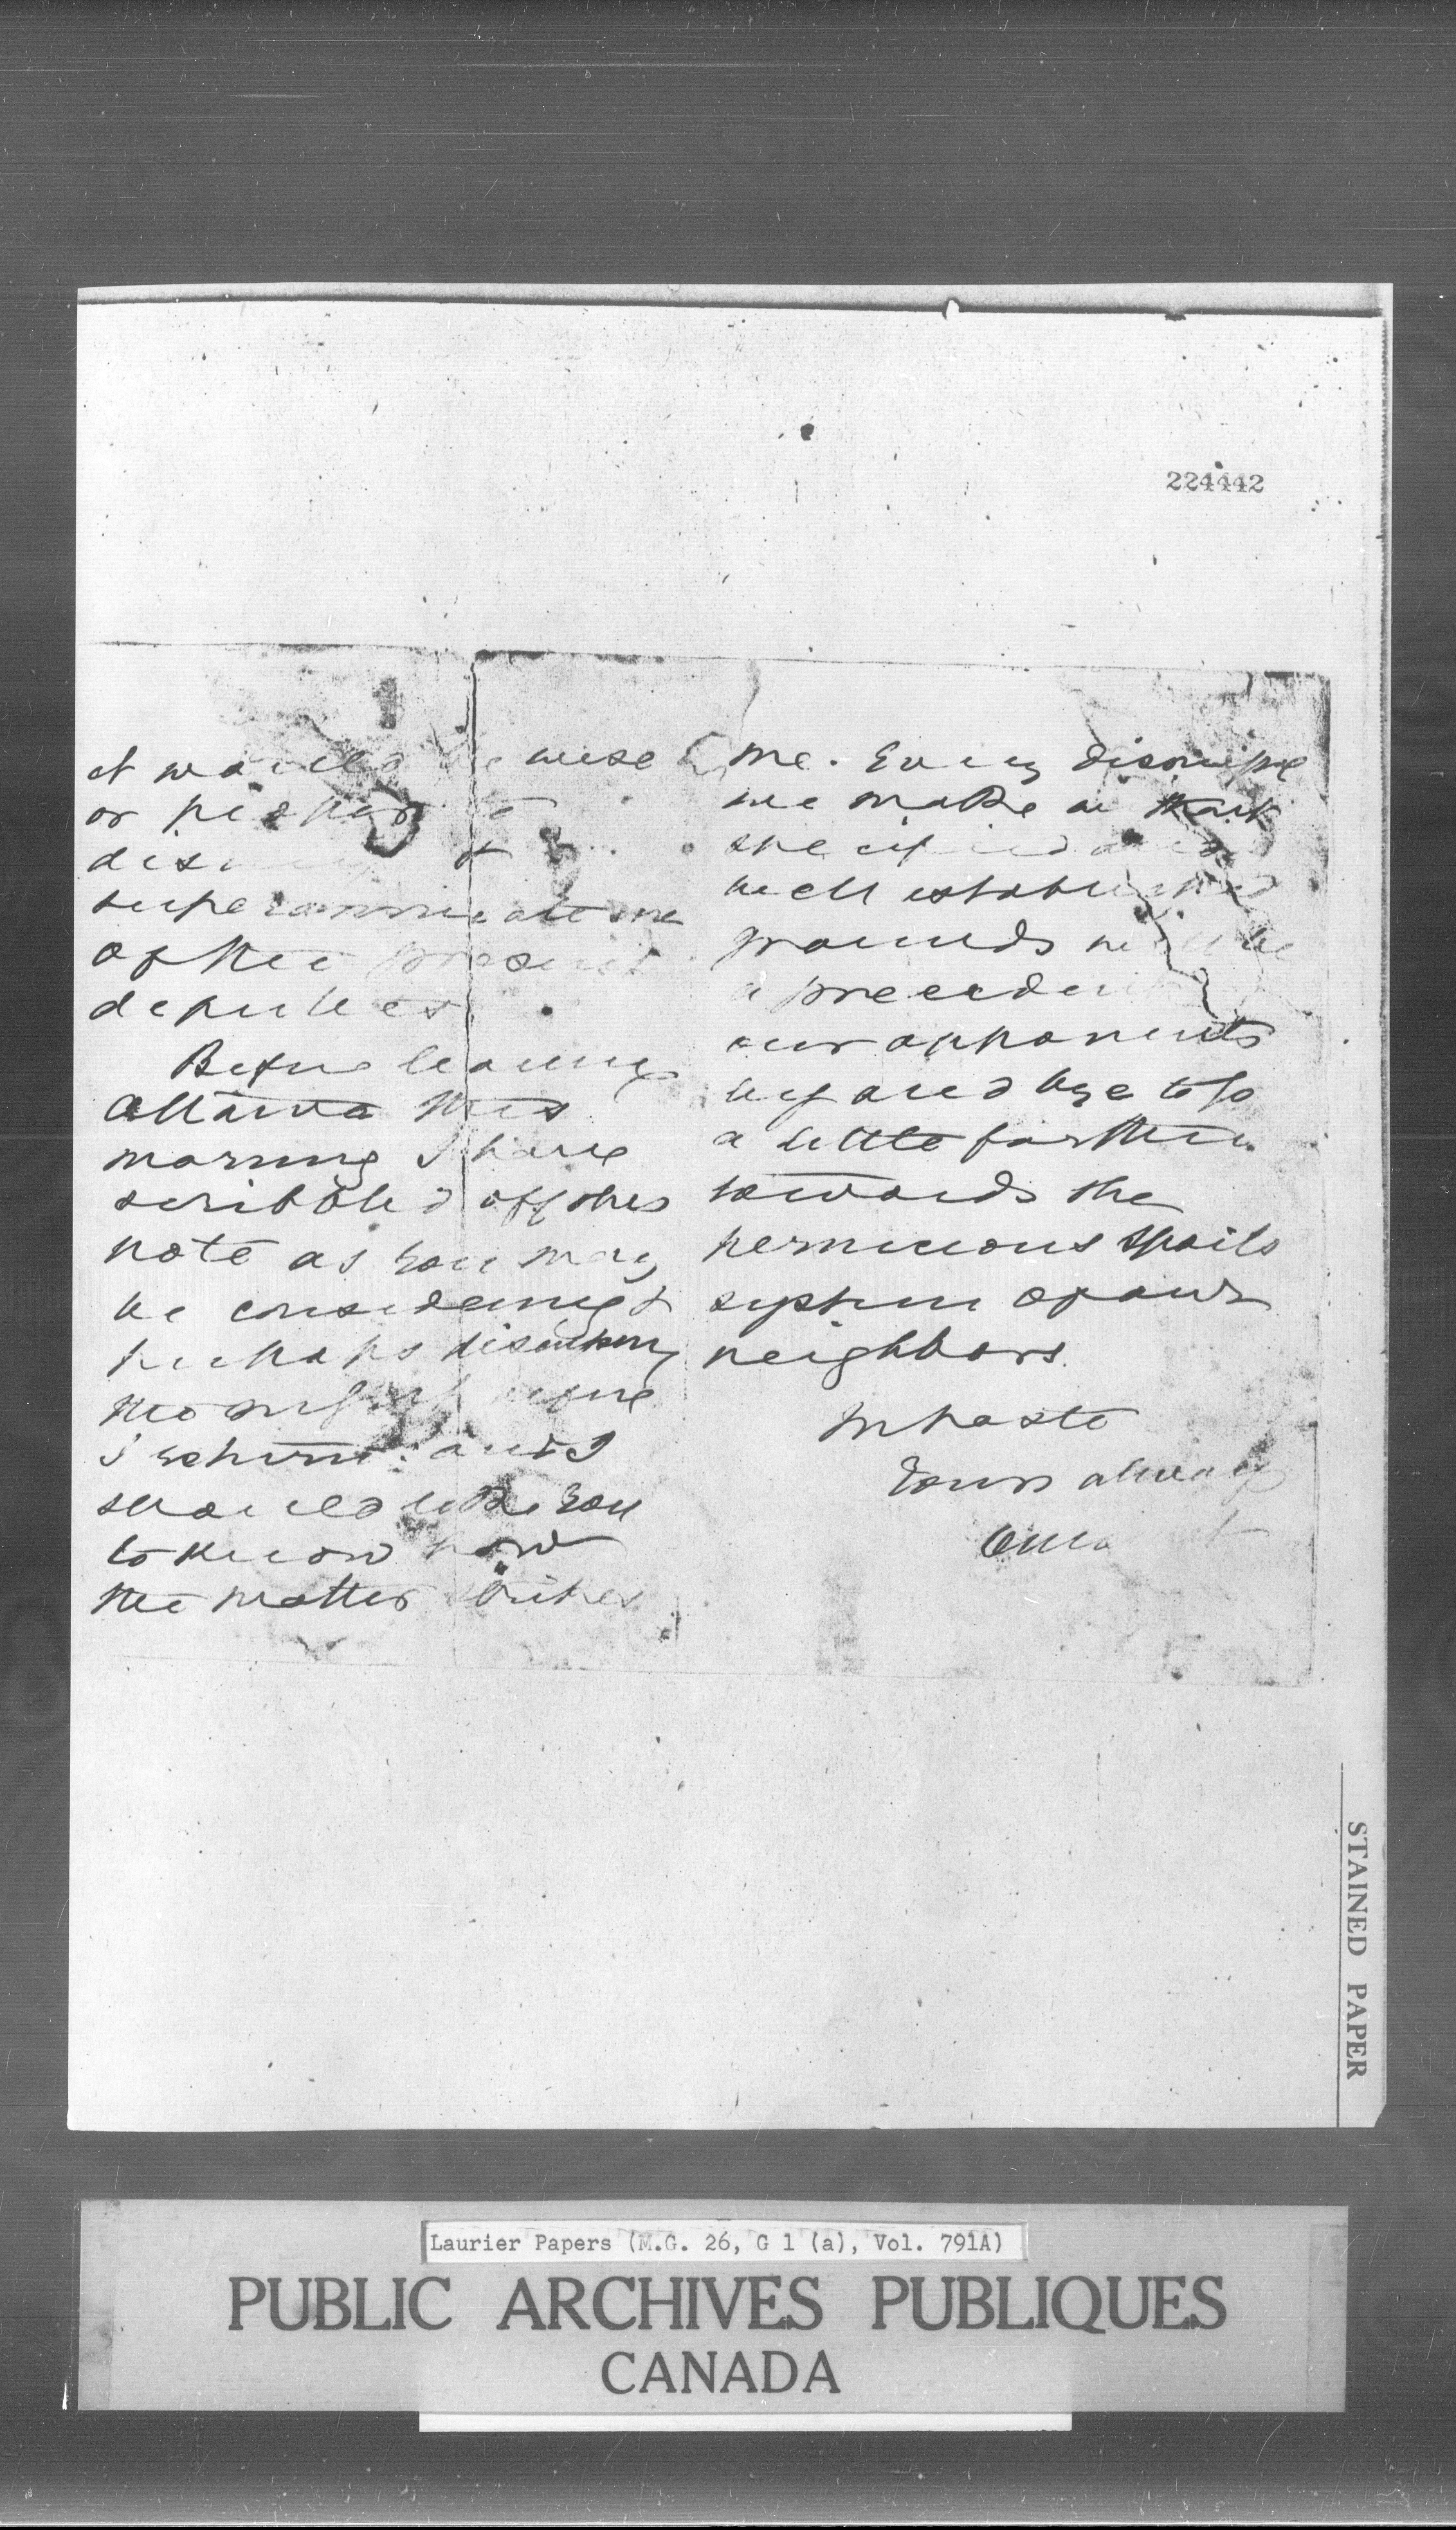 224442
it would be wise
or
superannuate one
of the present
deputies.
Before leaving
Ottawa this
morning I have
scribbled off this
note as you may
be considering &
perhaps discussing
the before
I return: and I
should like you
to know how
the matter strikes
me. Every dismissal
we make
specified and
well established
grounds will be
a precedent
our opponents
by and bye to go
a little farther
towards the
pernicious spoils
system of our
neighbors.
In haste
Yours always
STAINED PAPER
Laurier Papers (M.G. 26, G 1 (a), Vol. 791A)
PUBLIC ARCHIVES PUBLIQUES
CANADA